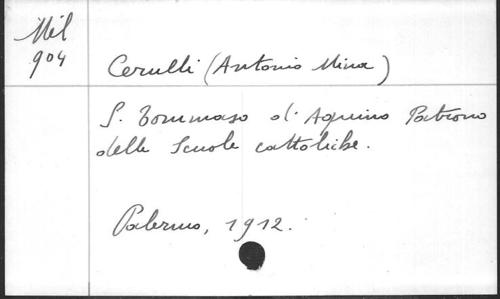 Mil
904
Cerulli (Antonio Mina)
S. Tommaso d'Aquino Patrono
delle Scuole cattoliche.
Palermo, 1912.